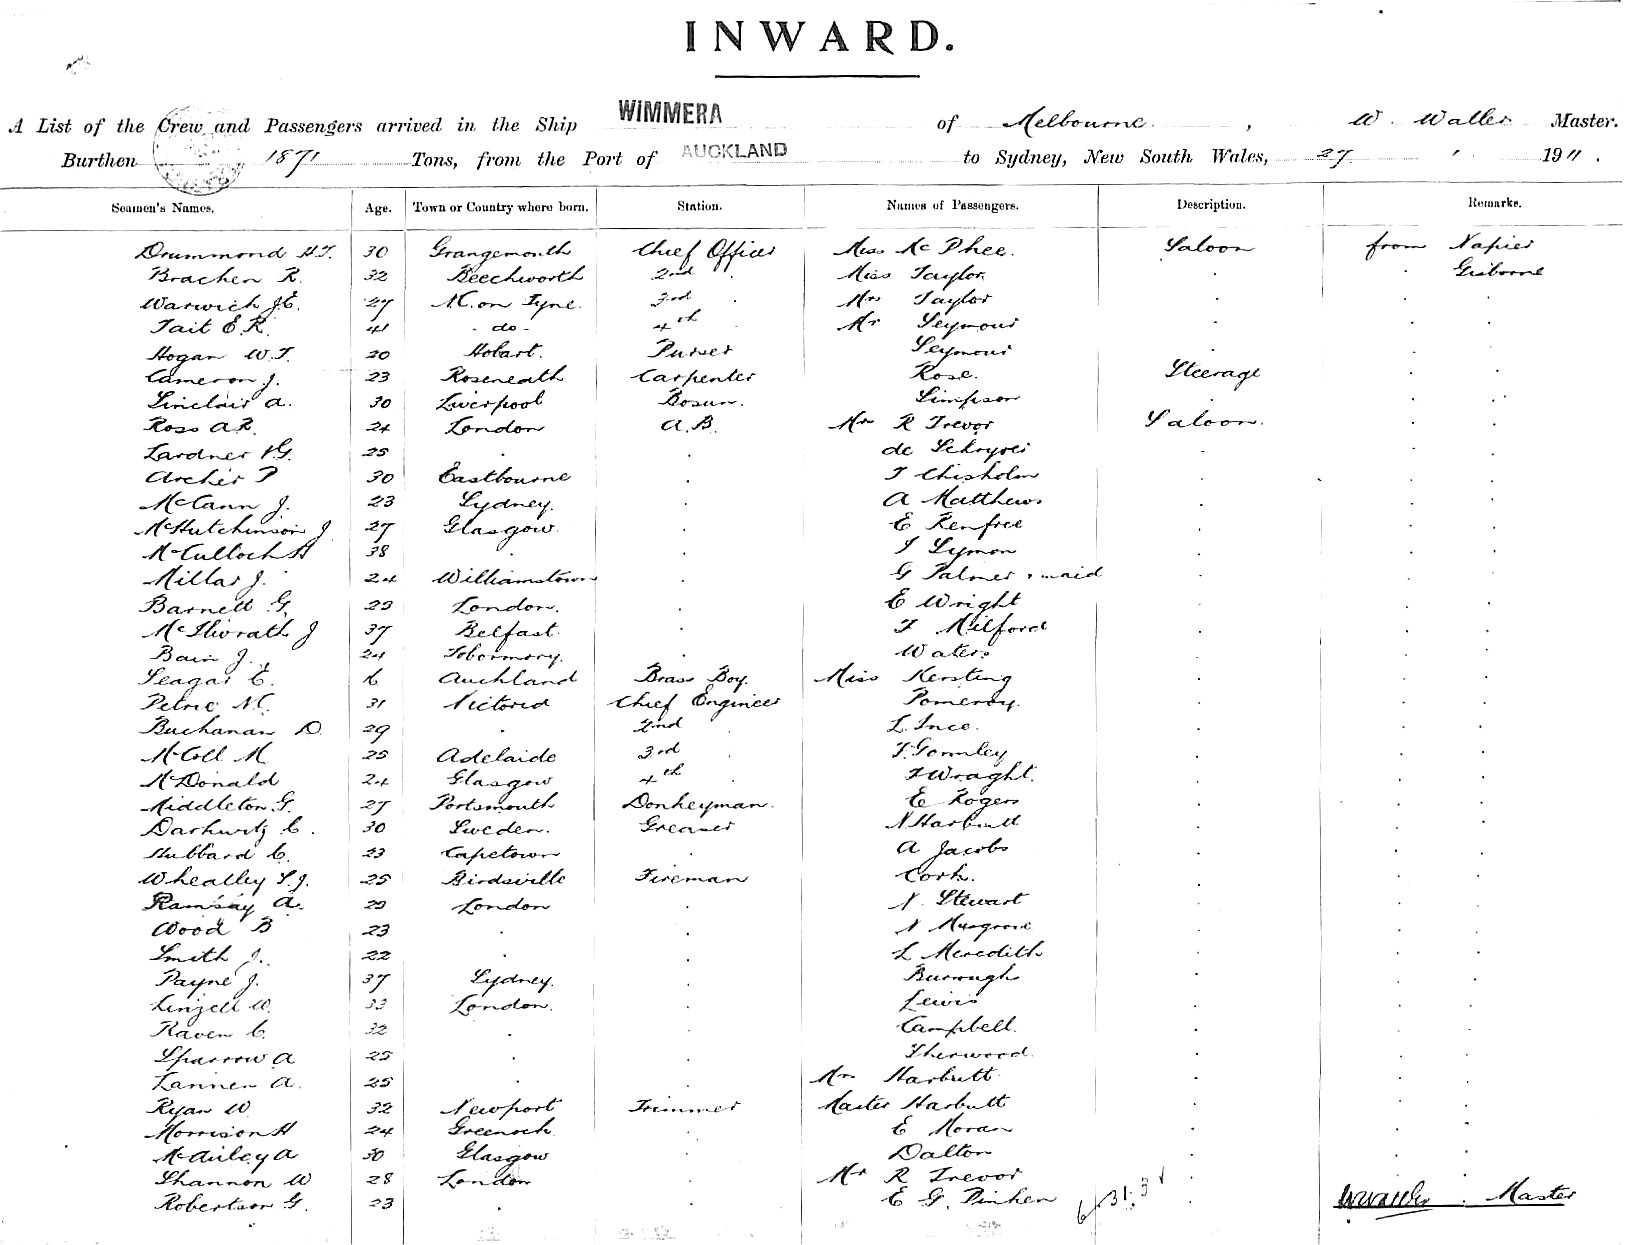 INWARD.
A List of the Crew and Passengers arrived in the Ship WIMMERA of Melbourne, W. Waller Master.
Burthen 1871 Tons, from the Port of AUCKLAND to Sydney, New South Wales, 27 ' 1911.
Seamen's Names. Age. Town or Country where born. Station. Names of Passengers. Description. Remarks.
Drummond H.J. 30 Grangemouth Chief Officer Miss McPhee. Saloon from Napier
Bracken R. 32 Beechworth 2nd . Miss Taylor . . Gisborne
Warwick J.E. 27 N.C. on Tyne. 3rd . Mrs Taylor . . .
Tait E.R. 41 - do - 4th . Mr Seymour . . .
Hogan W.T. 20 Hobart. Purser Seymour . . .
Cameron J. 23 Roseneath Carpenter Rose. Steerage . .
Sinclair A. 30 Liverpool Bosun. Simpson . . .
Ross A.R. 24 London A.B. Mrs R Trevor Saloon. . .
Lardner 25 . . de . . .
Archer P 30 Eastbourne . T Chisholm . . .
McCann J. 23 Sydney. . A Matthews . . .
McHutchinson J 27 Glasgow. . E Renfree . . .
McCulloch H 38 . . J Symon . . .
Millar J. 24 Williamstown . G Palmer & maid . . .
Barnett G. 29 London. . E Wright . . .
McIlwrath J 37 Belfast. . F Milford . . .
Bain J. 24 Tobermory. . Waters . . .
Seagar C. 16 Auckland Brass Boy. Miss Kersting . . .
Petrie N.C. 31 Victoria Chief Engineer Pomeroy. . . .
Buchanan D. 29 . 2nd . L. Ince. . . .
McColl M 25 Adelaide 3rd . T. Gormley . . .
McDonald 24 Glasgow 4th . Wraght. . . .
Middleton G. 27 Portsmouth Donkeyman. E Rogers . . .
Darkwitz C. 30 Sweden. Greaser N Harbutt . . .
Hubbard C. 23 Capetown . A Jacobs . . .
Wheatley S.J. 25 Birdsville Fireman Cork. . . .
Ramsay A. 29 London . N. Stewart . . .
Wood B 23 . . N Musgrove . . .
Smith J. 22 . . L Meredith . . .
Payne J. 37 Sydney. . Burrough . . .
Linzell W. 33 London. . Lewis . . .
Raven C. 32 . . Campbell. . . .
Sparrow A 25 . . Sherwood. . . .
Tanner A. 25 . . Mrs Harbutt . . .
Ryan W. 32 Newport Trimmer Master Harbutt . . .
Morrison H 24 Greenock. . E Moran . . .
McAuley A 30 Glasgow . Dalton . . .
Shannon W 28 London . Mr R Trevor . . .
Robertson G. 23 . E G. Pinken . W Waller . Master